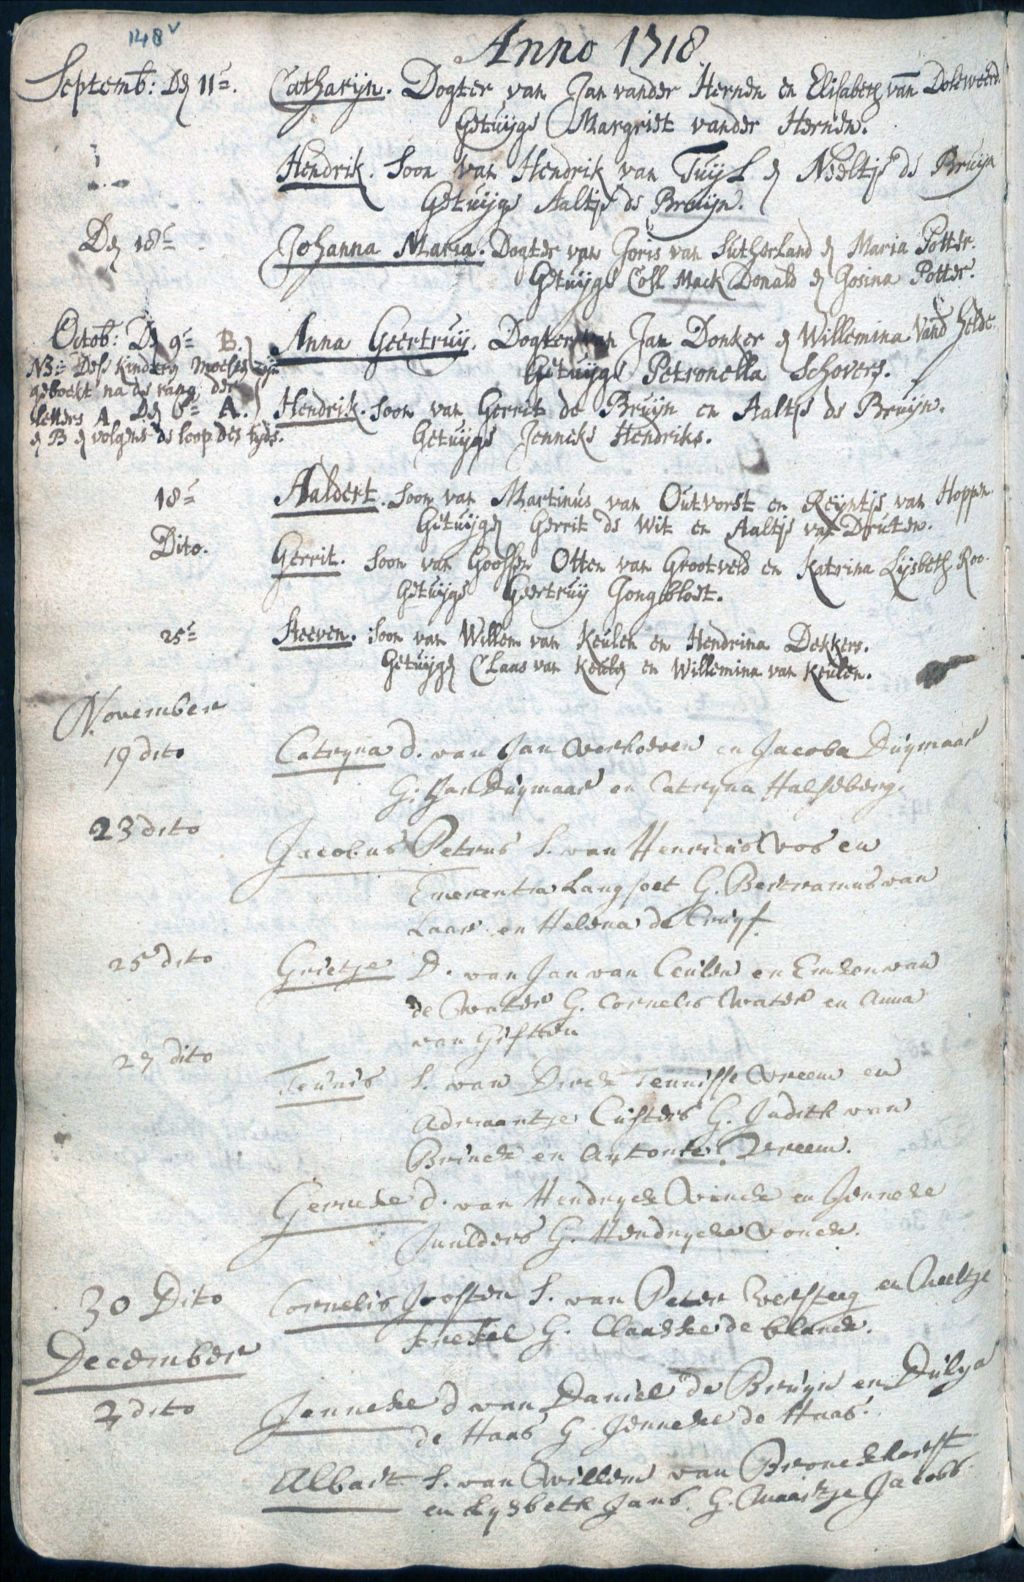 148v
Anno 1718
Septemb: Den 11e. Catharyn. Dogter van Jan vander Hernen en Elisabeth van Dodeweerd.
Getuyge Margriet vander Hernen.
Hendrik. Soon van Hendrik van Tuyl en Neeltje de Bruyn
Getuyge Aaltje de Bruijn.
Den 18e Johanna Maria. Dogter van Joris van Sutherland en Maria Potter.
Getuyge Coll Mack Donald en Gosina Potter.
Octob: Den 9e B. Anna Geertruy. Dogter van Jan Donker en Willemina vand Helde.
NB: Dese kinderen moeten zijn
Getuyge Petronella Schovers.
geboekt na de rang der
letters A. Den 6e A. Hendrik. Soon van Gerrit de Bruyn en Aaltje de Bruyn.
en B en volgens de loop des tyds.
Getuyge Jenneke Hendriks.
18e Aaldert. Soon van Martinus van Outvorst en Reyntje van Hoppen
Getuygen Gerrit de Wit en Aaltje van Druten.
Dito. Gerrit. Soon van Goossen Otten van Grootveld en Katrina Lijsbeth Roo-
Getuyge Geertruy Jongbloet.
25e Steeven. Soon van Willem van Keulen en Hendrina Dekkers.
Getuygen Claas van Keulen en Willemina van Keulen.
November
19 dito Catryna d. van Jan Verhoeven en Jacoba Duymaar
G. Jan Duymaar en Catryna Halseberg.
23 dito Jacobus Petrus S. van Henricus Vos en
Emerentia Langfoet G. Bertramus van
Laar en Helena de Cruyf
25 dito Grietje D. van Jan van Ceulen en Emken van
de Water G. Cornelis Water en Anna
van Giften
27 dito Teunis S. van Dirck Teunisse Vreem en
Adriaantje Custers G. Judith van
Brinck en Antonie Vreem.
Gericke d. van Hendryck Vinck en Jenneke
Muulders G. Hendrycke Vonck.
30 Dito Cornelis Joosten S. van Peter Versteeg en Neeltje
Krekel G. Claaske de Blanck.
December
2 dito Jenneke d van Daniel de Bruyn en Dulya
de Haas G. Jenneke de Haas.
Albart S. van Willem van Bronckhorst
en Lysbeth Jans. G. Maartje Jacobs